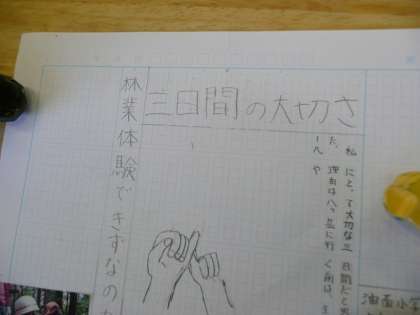 三日間の大切さ
林業体験できずなの
私にとって大切な三日間だと思
た。理由は八ヶ岳に行く前は、
油面小学